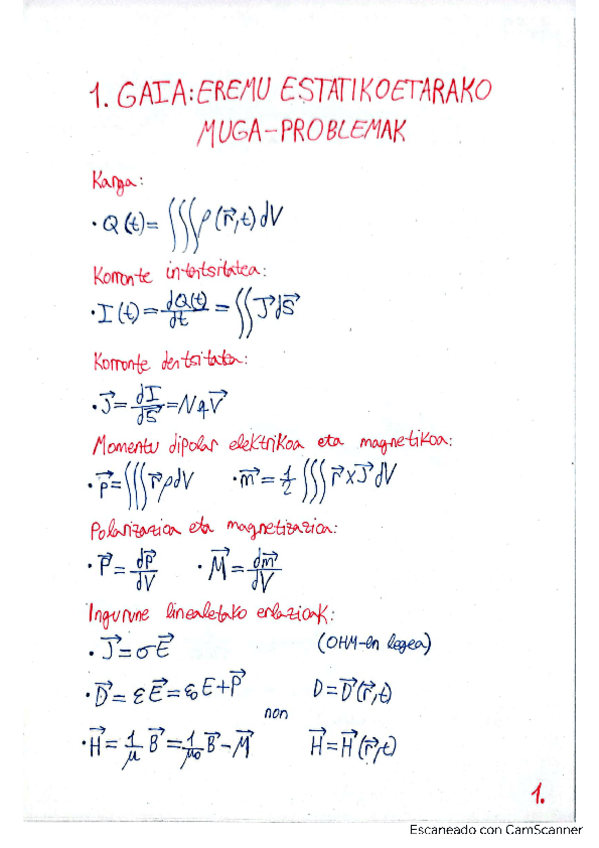 1. GAIA: EREMU ESTATIKOETARAKO
MUGA-PROBLEMAK
Karga:
· Q(t) = ∭ρ(r⃗,t)dV
Korronte intentsitatea:
· I(t) = dQ(t)/dt = ∬J⃗dS⃗
Korronte dentsitatea:
· J⃗ = dI/dS⃗ = NqV⃗
Momentu dipolar elektrikoa eta magnetikoa:
· p⃗ = ∭r⃗ρdV · m⃗ = 1/2 ∭r⃗×J⃗dV
Polarizazioa eta magnetizazioa:
· P⃗ = dp⃗/dV · M⃗ = dm⃗/dV
Ingurune linealetako erlazioak:
· J⃗ = σE⃗ (OHM-en legea)
· D⃗ = εE⃗ = ε₀E + P⃗ D = D⃗(r⃗,t)
non
· H⃗ = 1/μ B⃗ = 1/μ₀ B⃗ - M⃗ H⃗ = H⃗(r⃗,t)
1.
Escaneado con CamScanner